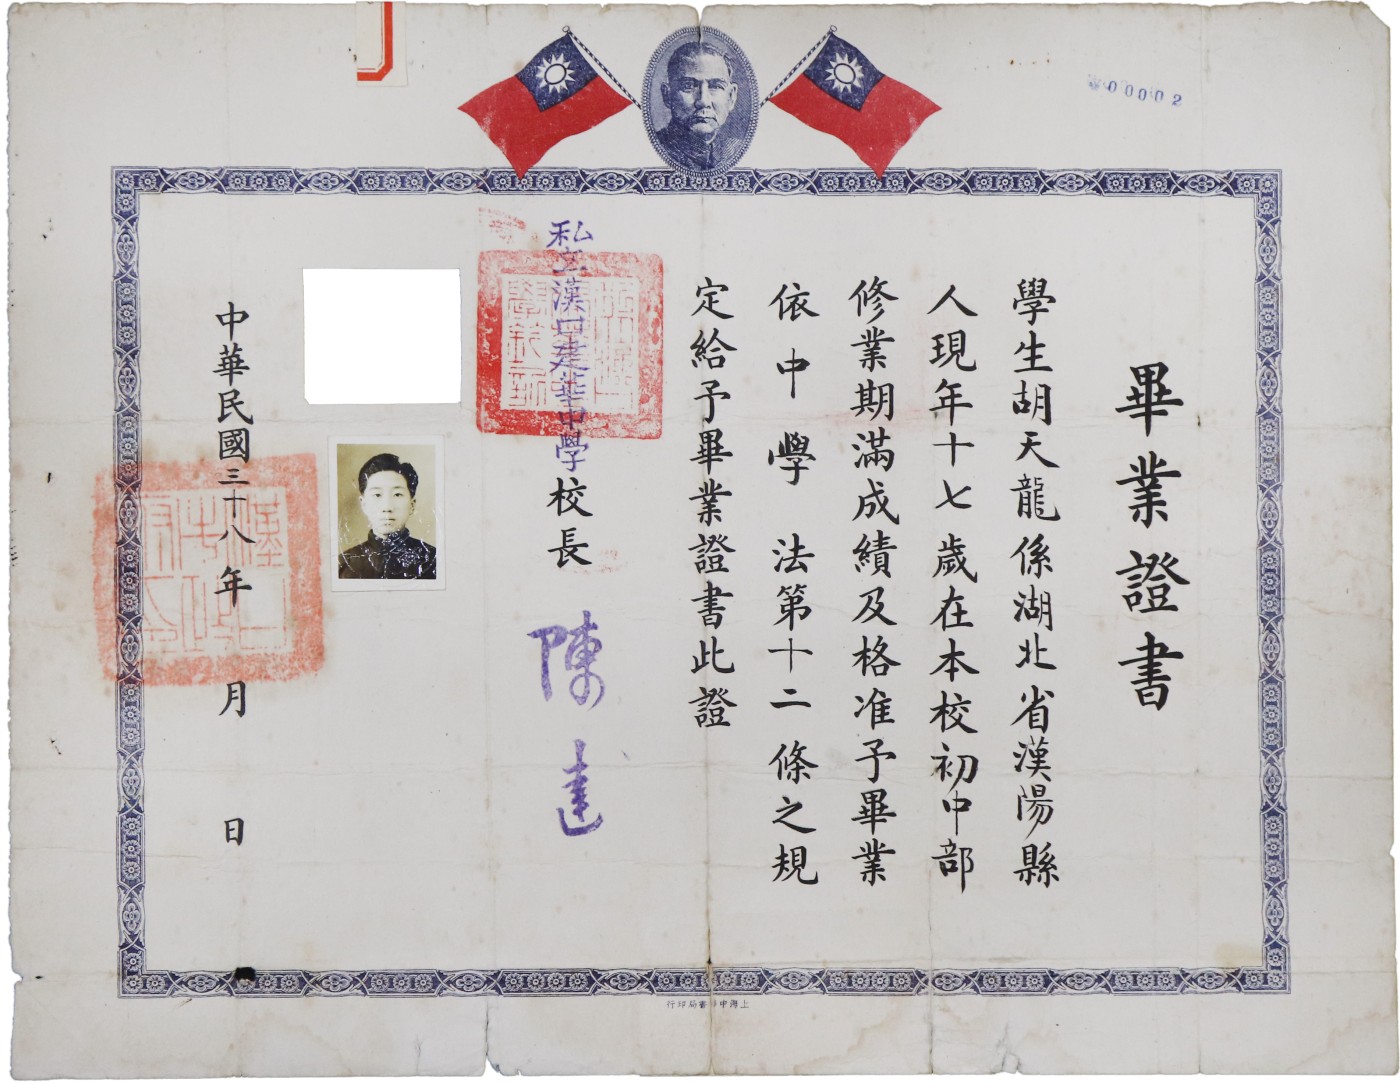 00002
畢業證書
學生胡天龍係湖北省漢陽縣
人現年十七歲在本校初中部
修業期滿成績及格准予畢業
依中學法第十二條之規
定給予畢業證書此證
私立漢口建華中學校長 陳達
中華民國三十八年 月 日
上海中華書局印行